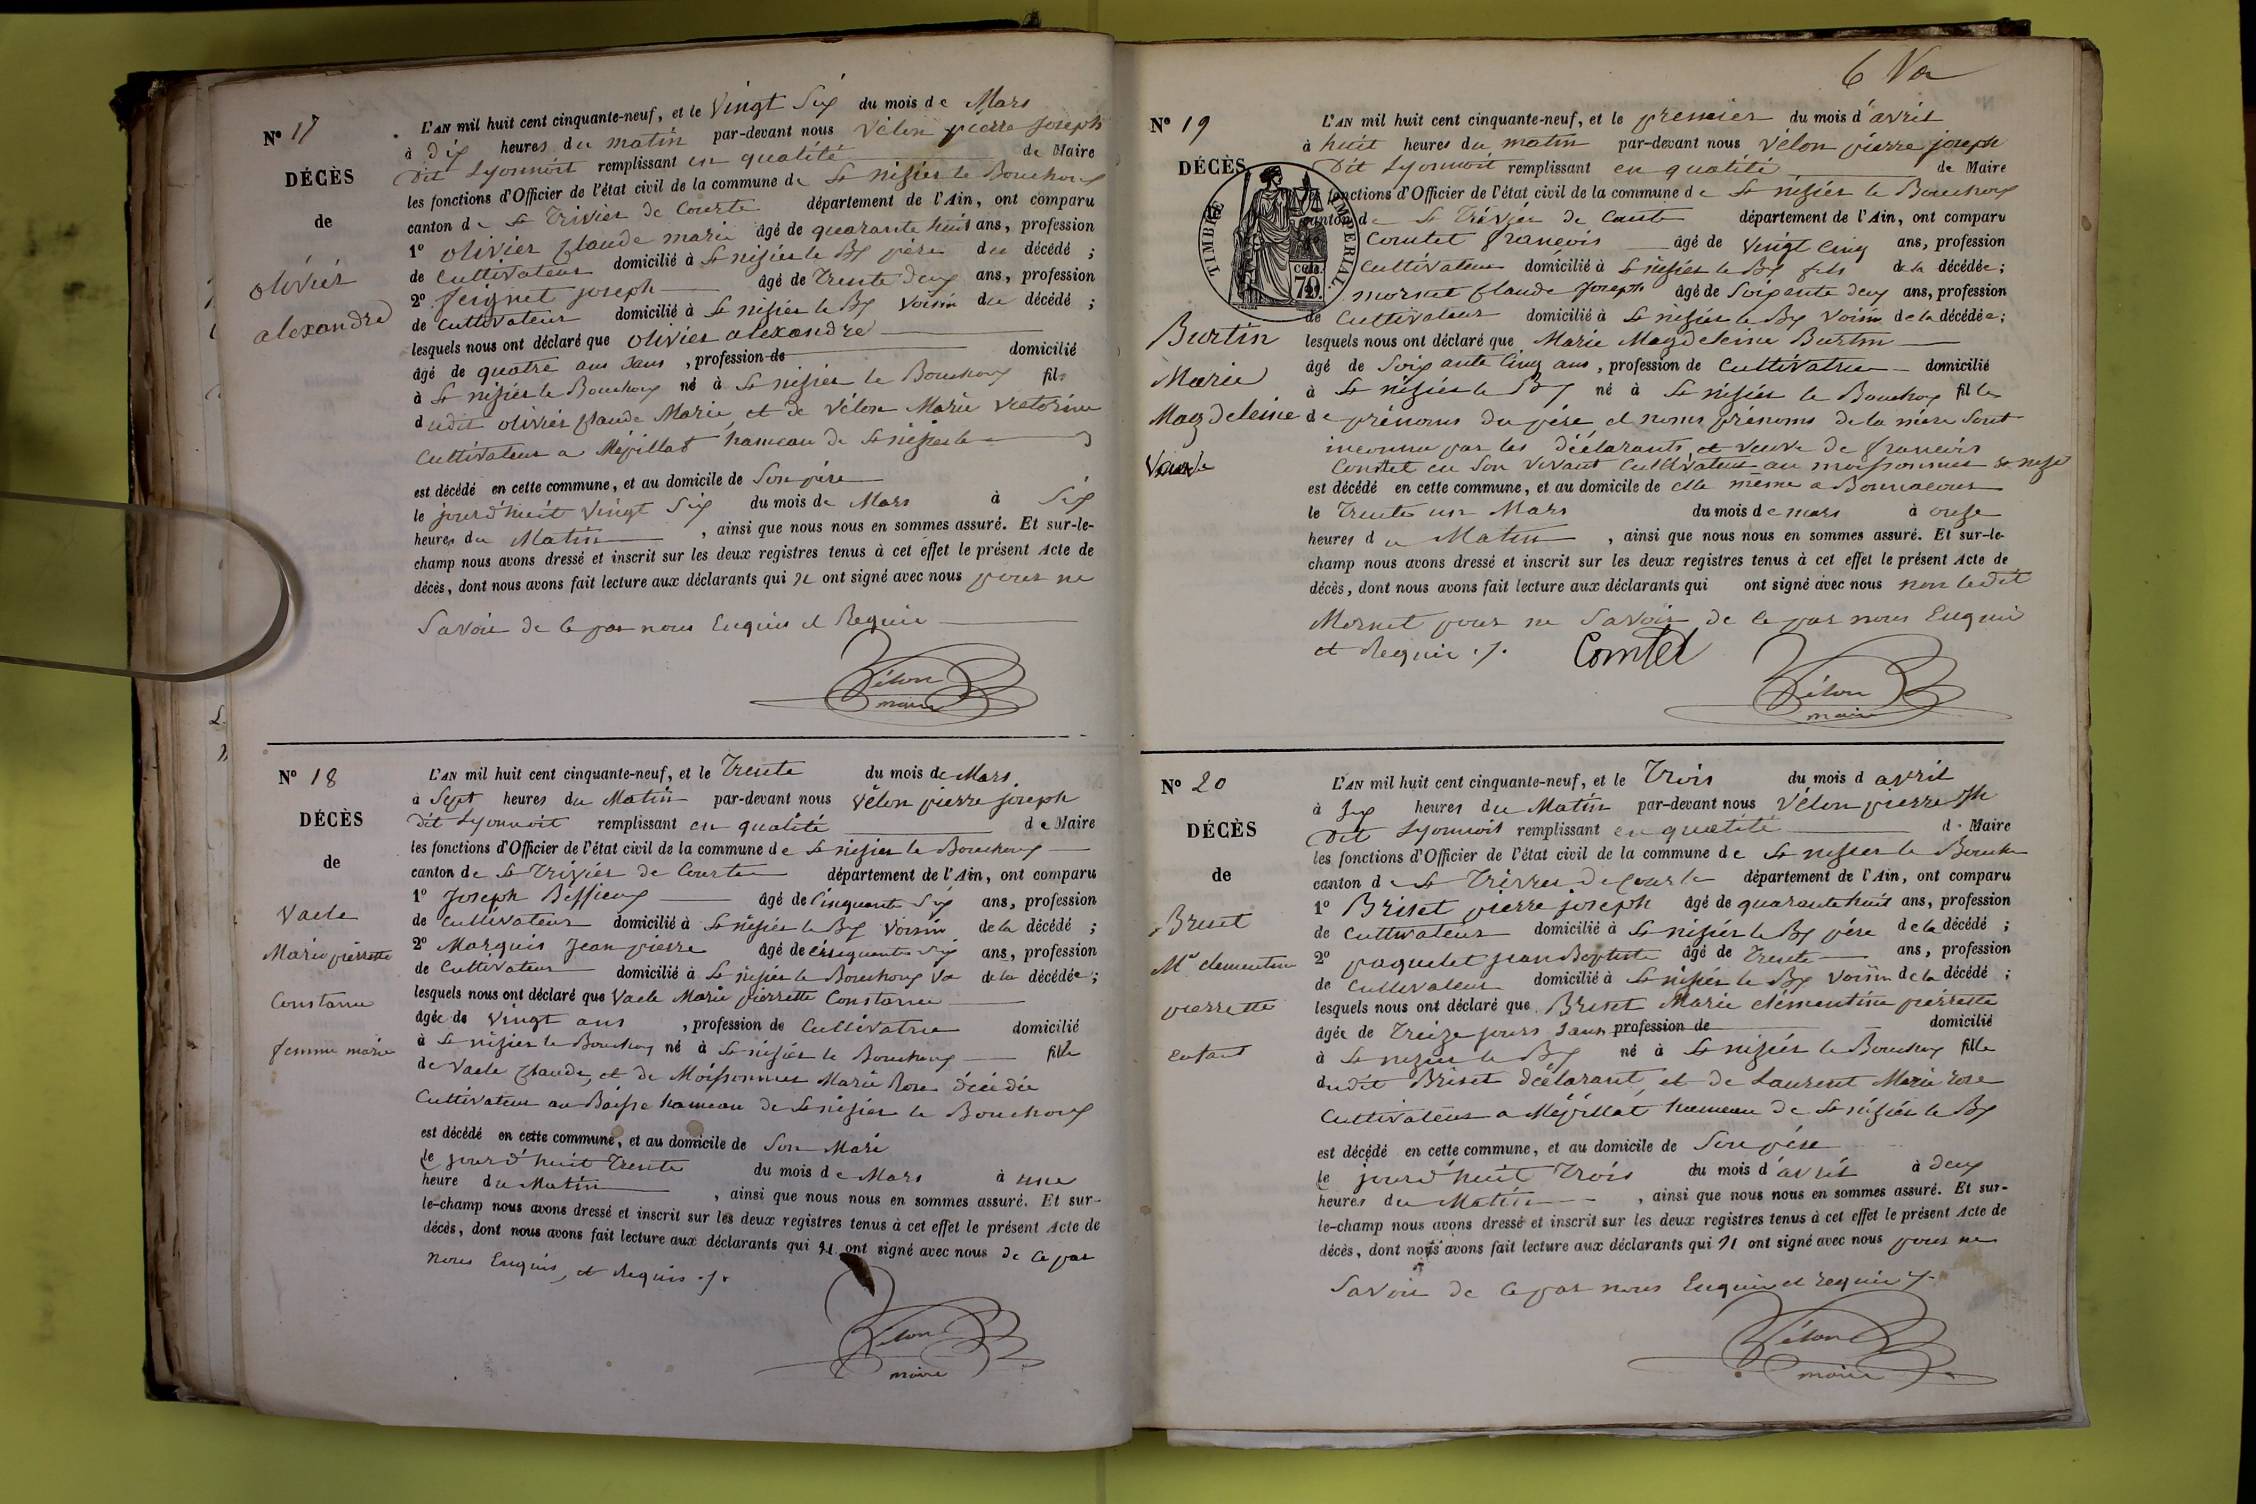 N° 17
DÉCÈS
de
olivier
alexandre
L'AN mil huit cent cinquante-neuf, et le Vingt Six du mois de Mars
à dix heures du matin par-devant nous Vélon pierre joseph
dit Lyonnoit remplissant en qualité de Maire
les fonctions d'Officier de l'état civil de la commune de St nizier le Bouchoux
canton de St Trivier de Courte département de l'Ain, ont comparu
1° olivier Claude marie âgé de quarante huit ans, profession
de Cultivateur domicilié à St nizier le Bx père du décédé ;
2° feignet joseph âgé de Trente deux ans, profession
de Cultivateur domicilié à St nizier le Bx Voisin du décédé ;
lesquels nous ont déclaré que olivier alexandre
âgé de quatre ans Sans , profession de domicilié
à St nizier le Bouchoux né à St nizier le Bouchoux fils
dudit olivier Claude Marie, et de Vélon Marie Victorine
Cultivateur a Mépillat hameau de St nizier le
est décédé en cette commune, et au domicile de Son père
le jourd'huit Vingt Six du mois de Mars à Six
heures du Matin , ainsi que nous nous en sommes assuré. Et sur-le-
champ nous avons dressé et inscrit sur les deux registres tenus à cet effet le présent Acte de
décès, dont nous avons fait lecture aux déclarants qui n ont signé avec nous pour ne
Savoir de ce par nous Enquis et Requis
Vélon
maire
N° 18
DÉCÈS
de
Vacle
Marie pierrette
Constance
femme marie
L'AN mil huit cent cinquante-neuf, et le Trente du mois de Mars
à Sept heures du Matin par-devant nous Vélon pierre joseph
dit Lyonnoit remplissant en qualité de Maire
les fonctions d'Officier de l'état civil de la commune de St nizier le Bouchoux
canton de St Trivier de Courte département de l'Ain, ont comparu
1° Joseph Beffieux âgé de Cinquante Six ans, profession
de Cultivateur domicilié à St nizier le Bx Voisin de la décédé ;
2° Marquis Jean pierre âgé de Cinquante Six ans, profession
de Cultivateur domicilié à St nizier le Bouchoux Vo de la décédée ;
lesquels nous ont déclaré que Vacle Marie pierrette Constance
âgée de Vingt ans , profession de Cultivatrice domicilié
à St nizier le Bouchoux né à St nizier le Bouchoux fille
de Vacle Claude, et de Moissonnier Marie Rose décédée
Cultivateur au Baisse hameau de St nizier le Bouchoux
est décédé en cette commune, et au domicile de Son Mari
le jourd'huit Trente du mois de Mars à une
heure du Matin , ainsi que nous nous en sommes assuré. Et sur-
le-champ nous avons dressé et inscrit sur les deux registres tenus à cet effet le présent Acte de
décès, dont nous avons fait lecture aux déclarants qui n ont signé avec nous de ce par
nous Enquis, et Requis ./.
Vélon
maire
6 Vo
N° 19
DÉCÈS
TIMBRE IMPÉRIAL.
Burtin
Marie
Magdeleine
Veuve
L'AN mil huit cent cinquante-neuf, et le premier du mois d'avril
à huit heures du matin par-devant nous Vélon pierre joseph
Dit Lyonnoit remplissant en qualité de Maire
fonctions d'Officier de l'état civil de la commune de St nizier le Bouchoux
canton de St Trivier de Courte département de l'Ain, ont comparu
Comtet françois âgé de Vingt Cinq ans, profession
Cultivateur domicilié à St nizier le Bx fils de la décédée ;
mornet Claude Joseph âgé de Soixante deux ans, profession
de Cultivateur domicilié à St nizier le Bx Voisin de la décédée ;
lesquels nous ont déclaré que Marie Magdeleine Burtin
âgé de Soixante Cinq ans , profession de Cultivatrice domicilié
à St nizier le Bx né à St nizier le Bouchoux fille
de prénoms du père et noms prénoms de la mère Sont
inconnu par les déclarants, et Veuve de francois
Comtet en Son Vivant Cultivateur au moissonnier St nizi
est décédé en cette commune, et au domicile de elle même a Bonnacour
le Trente un Mars du mois de mars à onze
heures du Matin , ainsi que nous nous en sommes assuré. Et sur-le-
champ nous avons dressé et inscrit sur les deux registres tenus à cet effet le présent Acte de
décès, dont nous avons fait lecture aux déclarants qui ont signé avec nous non ledit
Mornet pour ne Savoir de ce par nous Enquis
et Requis ./. Comtet
Vélon
maire
N° 20
DÉCÈS
de
Briset
Mie clementine
pierrette
enfant
L'AN mil huit cent cinquante-neuf, et le Trois du mois d avril
à Six heures du Matin par-devant nous Vélon pierre Jh
Dit Lyonnoit remplissant en qualité de Maire
les fonctions d'Officier de l'état civil de la commune de St nizier le Bouch
canton de St Trivier de Courte département de l'Ain, ont comparu
1° Briset pierre joseph âgé de quarante huit ans, profession
de Cultivateur domicilié à St nizier le Bx père de la décédé ;
2° paquelet jean Baptiste âgé de Trente ans, profession
de Cultivateur domicilié à St nizier le Bx Voisin de la décédé ;
lesquels nous ont déclaré que Briset Marie clémentine pierrette
âgée de Treize jours Sans profession de domicilié
à St nizier le Bx né à St nizier le Bouchoux fille
dudit Briset déclarant, et de Laurent Marie rose
Cultivateur a Mépillat hameau de St nizier le Bx
est décédé en cette commune, et au domicile de Son père
le jourd'huit Trois du mois d'avril à deux
heures du Matin , ainsi que nous nous en sommes assuré. Et sur-
le-champ nous avons dressé et inscrit sur les deux registres tenus à cet effet le présent Acte de
décès, dont nous avons fait lecture aux déclarants qui n ont signé avec nous pour ne
Savoir de ce par nous Enquis et requis ./.
Vélon
maire